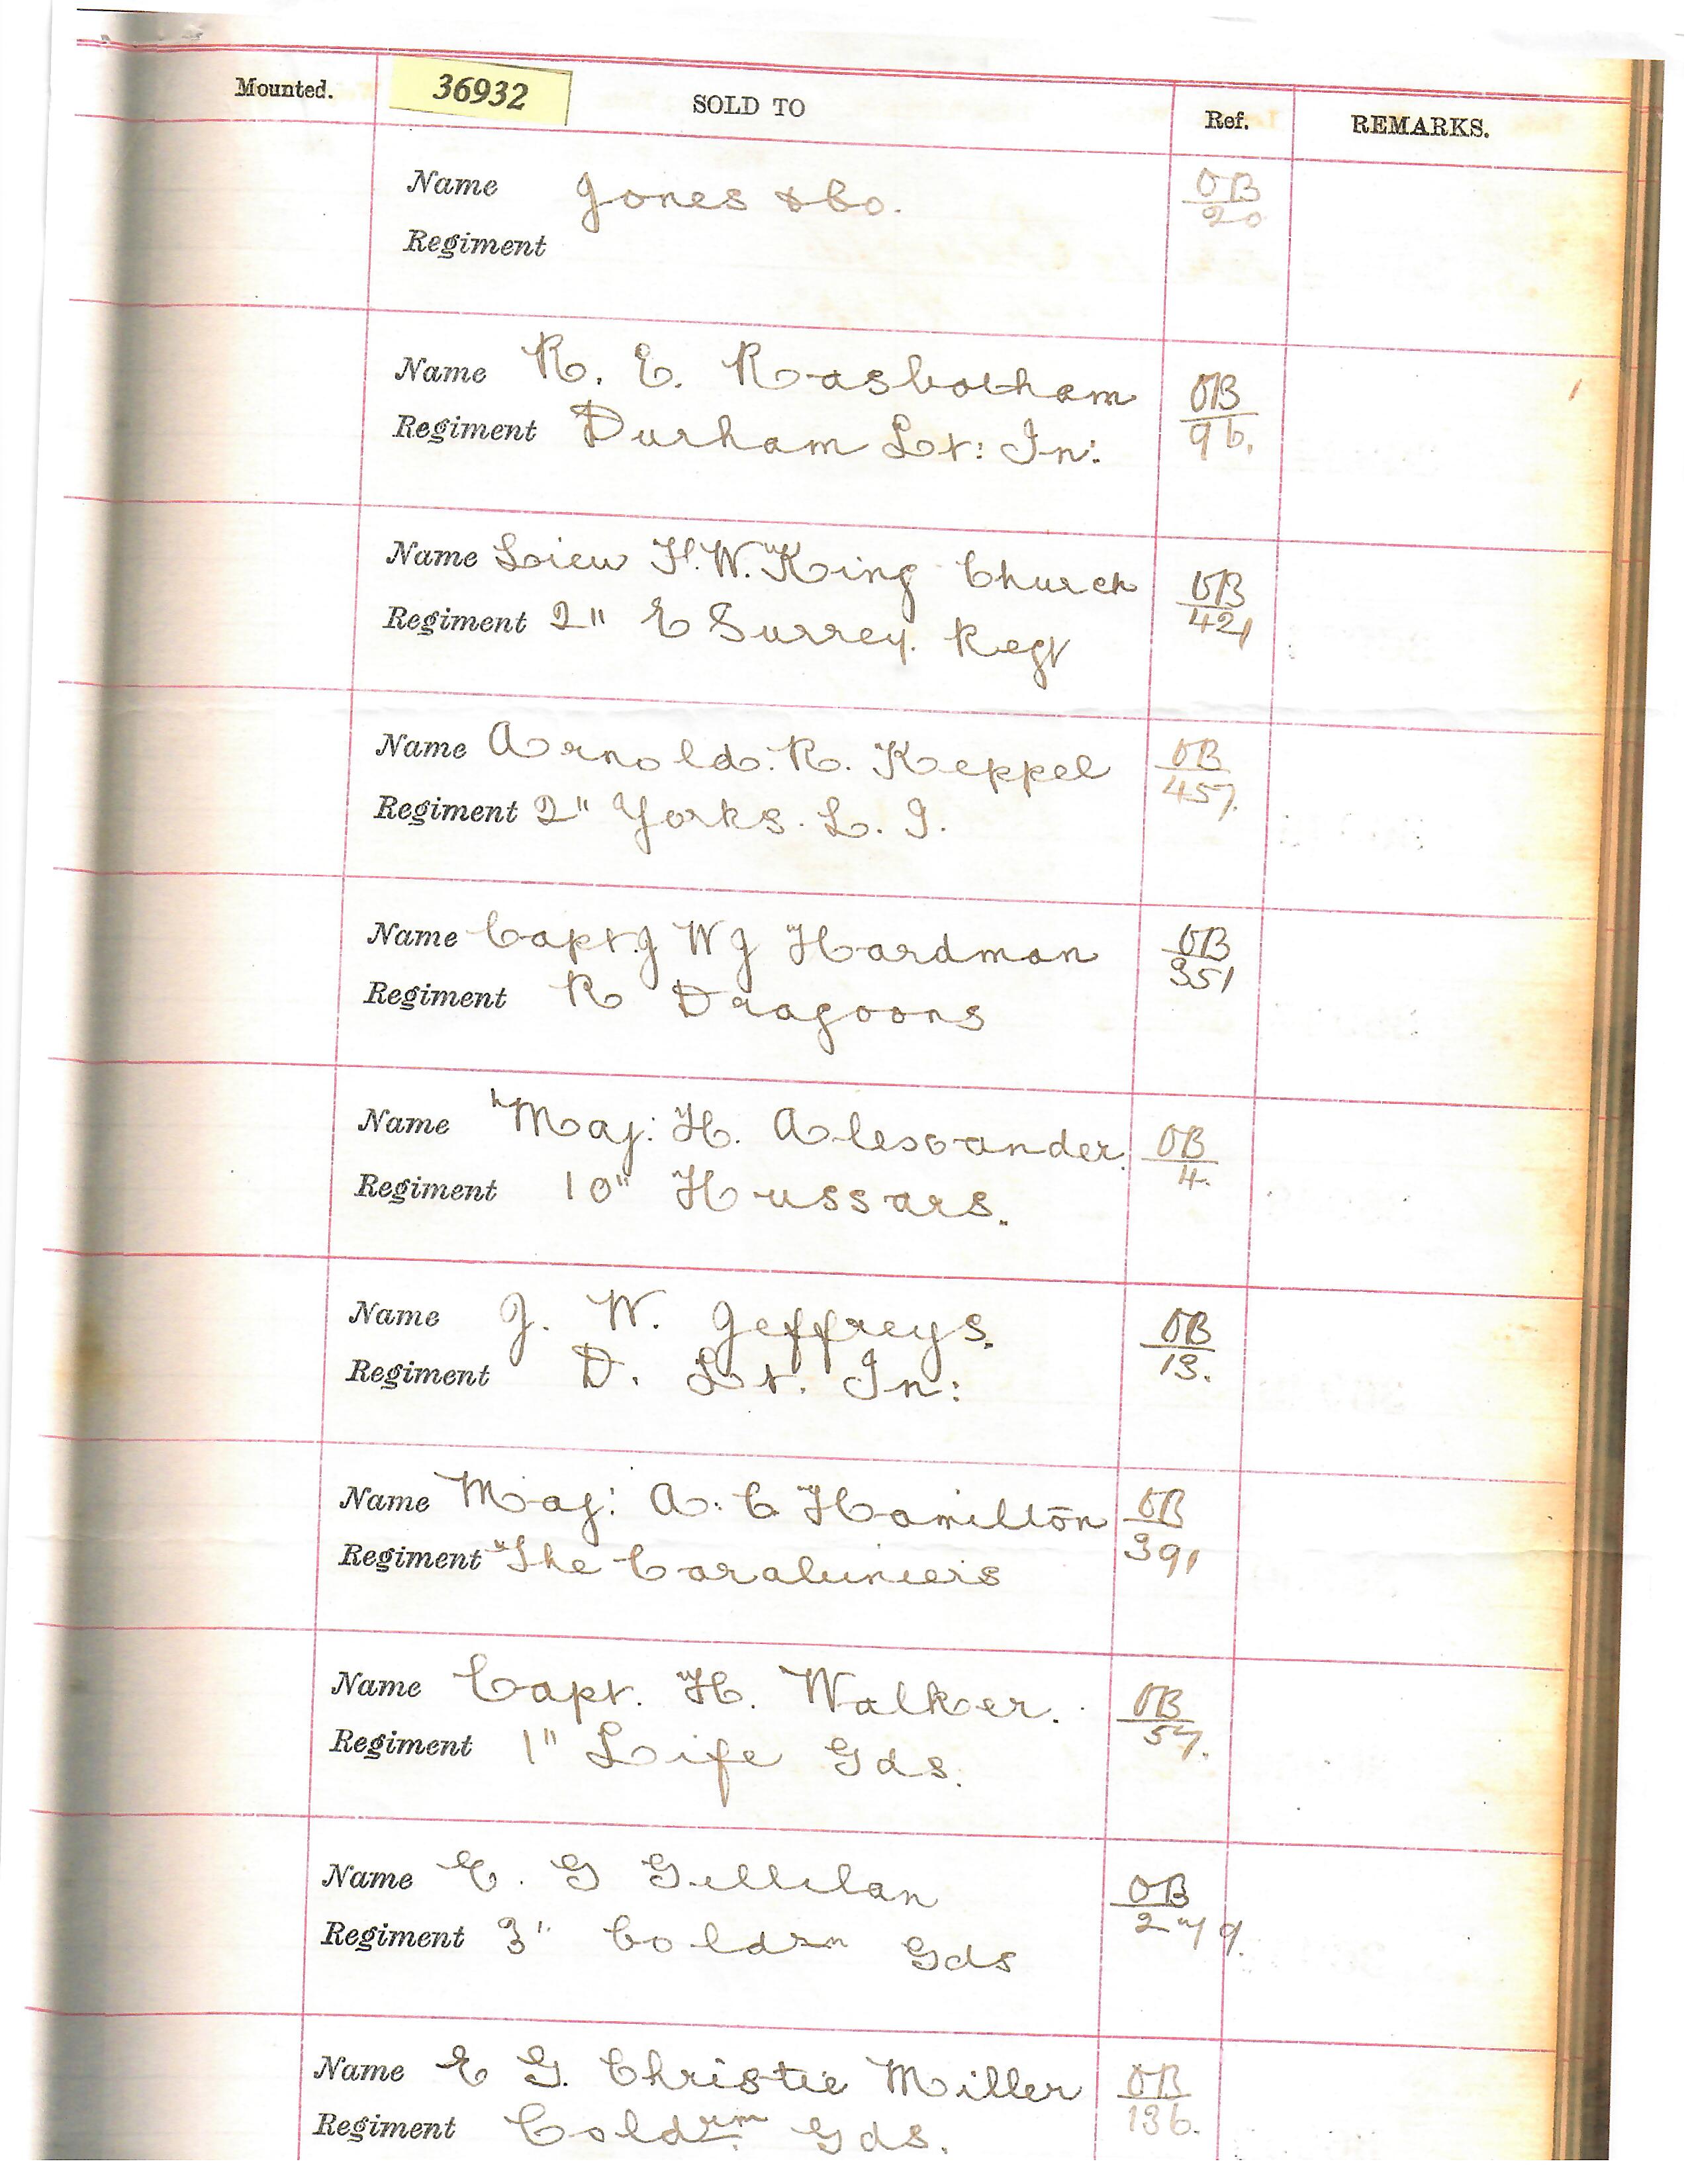 Mounted. 36932 SOLD TO Ref. REMARKS.
Name Jones & Co. OB
20
Regiment
Name R. E. Rasbotham OB
Regiment Durham Lt: In: 96.
Name Lieu H.W. King Church OB
Regiment 2" E Surrey. Regt 421
Name Arnold. R. Keppel OB
Regiment 2" Yorks. L. I. 457.
Name Capt. J W J Hardman OB
351
Regiment R Dragoons
Name Maj: H. Alexander. OB
Regiment 10" Hussars. 4.
Name J. W. Jeffreys. OB
Regiment D. Lt. In: 13.
Name Maj: A. C Hamilton OB
Regiment "The Carabiniers 391
Name Capt. H. Walker. OB
Regiment 1" Life Gds. 57.
Name E. G Gillilan OB
Regiment 3" Coldrm Gds 279.
Name E G. Christie Miller OB
Regiment Coldrm Gds. 136.